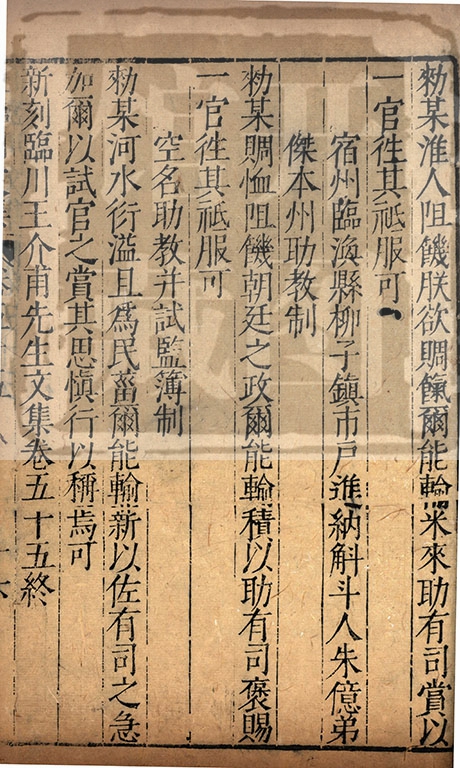 勑某淮人阻饑朕欲賙餼爾能輸米來助有司賞以
一官徃其祗服可
宿州臨渙縣柳子鎮市戶進納斛斗人朱億弟
傑本州助教制
勑某賙恤阻饑朝廷之政爾能輸積以助有司褒賜
一官徃其祗服可
空名助教并試監簿制
勑某河水衍溢且爲民菑爾能輸薪以佐有司之急
加爾以試官之賞其思愼行以稱焉可
新刻臨川王介甫先生文集卷五十五終